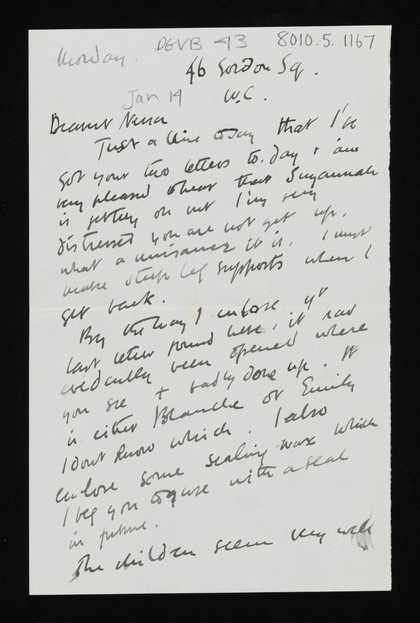 Monday. DGVB 43 8010.5.1167
46 Gordon Sq.
Jan 14 W.C.
Dearest Nessa
Just a line to say that I've
got your two letters to-day & am
very pleased to hear that Susannah
is getting on but I'm very
distressed you are not get up.
what a nuisance it is. I must
make leg supports when I
get back.
By the way I enclose yr
last letter found here, it had
evidently been opened where
you see & badly done up. It
is either Blanche or Emily
I dont know which. I also
enclose some sealing wax which
I beg you to use with a seal
in future.
The children seem very well